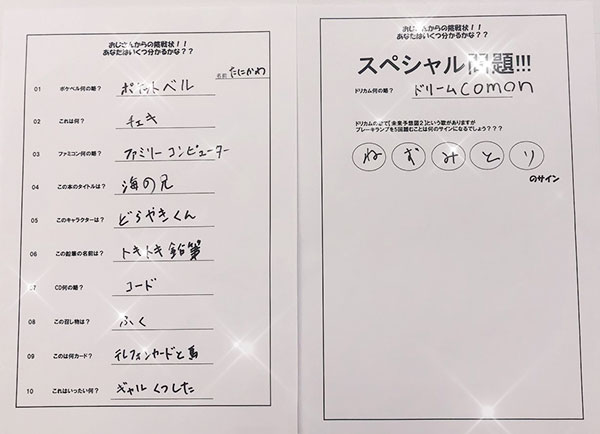 おじさんからの挑戦状!!
あなたはいくつ分かるかな??
名前 たにかわ
01 ポケベル何の略? ポケットベル
02 これは何? チェキ
03 ファミコン何の略? ファミリーコンピューター
04 この本のタイトルは? 海の兄
05 このキャラクターは? どらやきくん
06 この鉛筆の名前は? トキトキ鉛筆
07 CD何の略? コード
08 この召し物は? ふく
09 このは何カード? テレフォンカードと馬
10 これはいったい何? ギャルくつした
おじさんからの挑戦状!!
あなたはいくつ分かるかな??
スペシャル問題!!!
ドリカム何の略? ドリームcomon
ドリカムの歌で【未来予想図2】という歌がありますが
ブレーキランプを5回踏むことは何のサインになるでしょう???
ねずみとり
のサイン